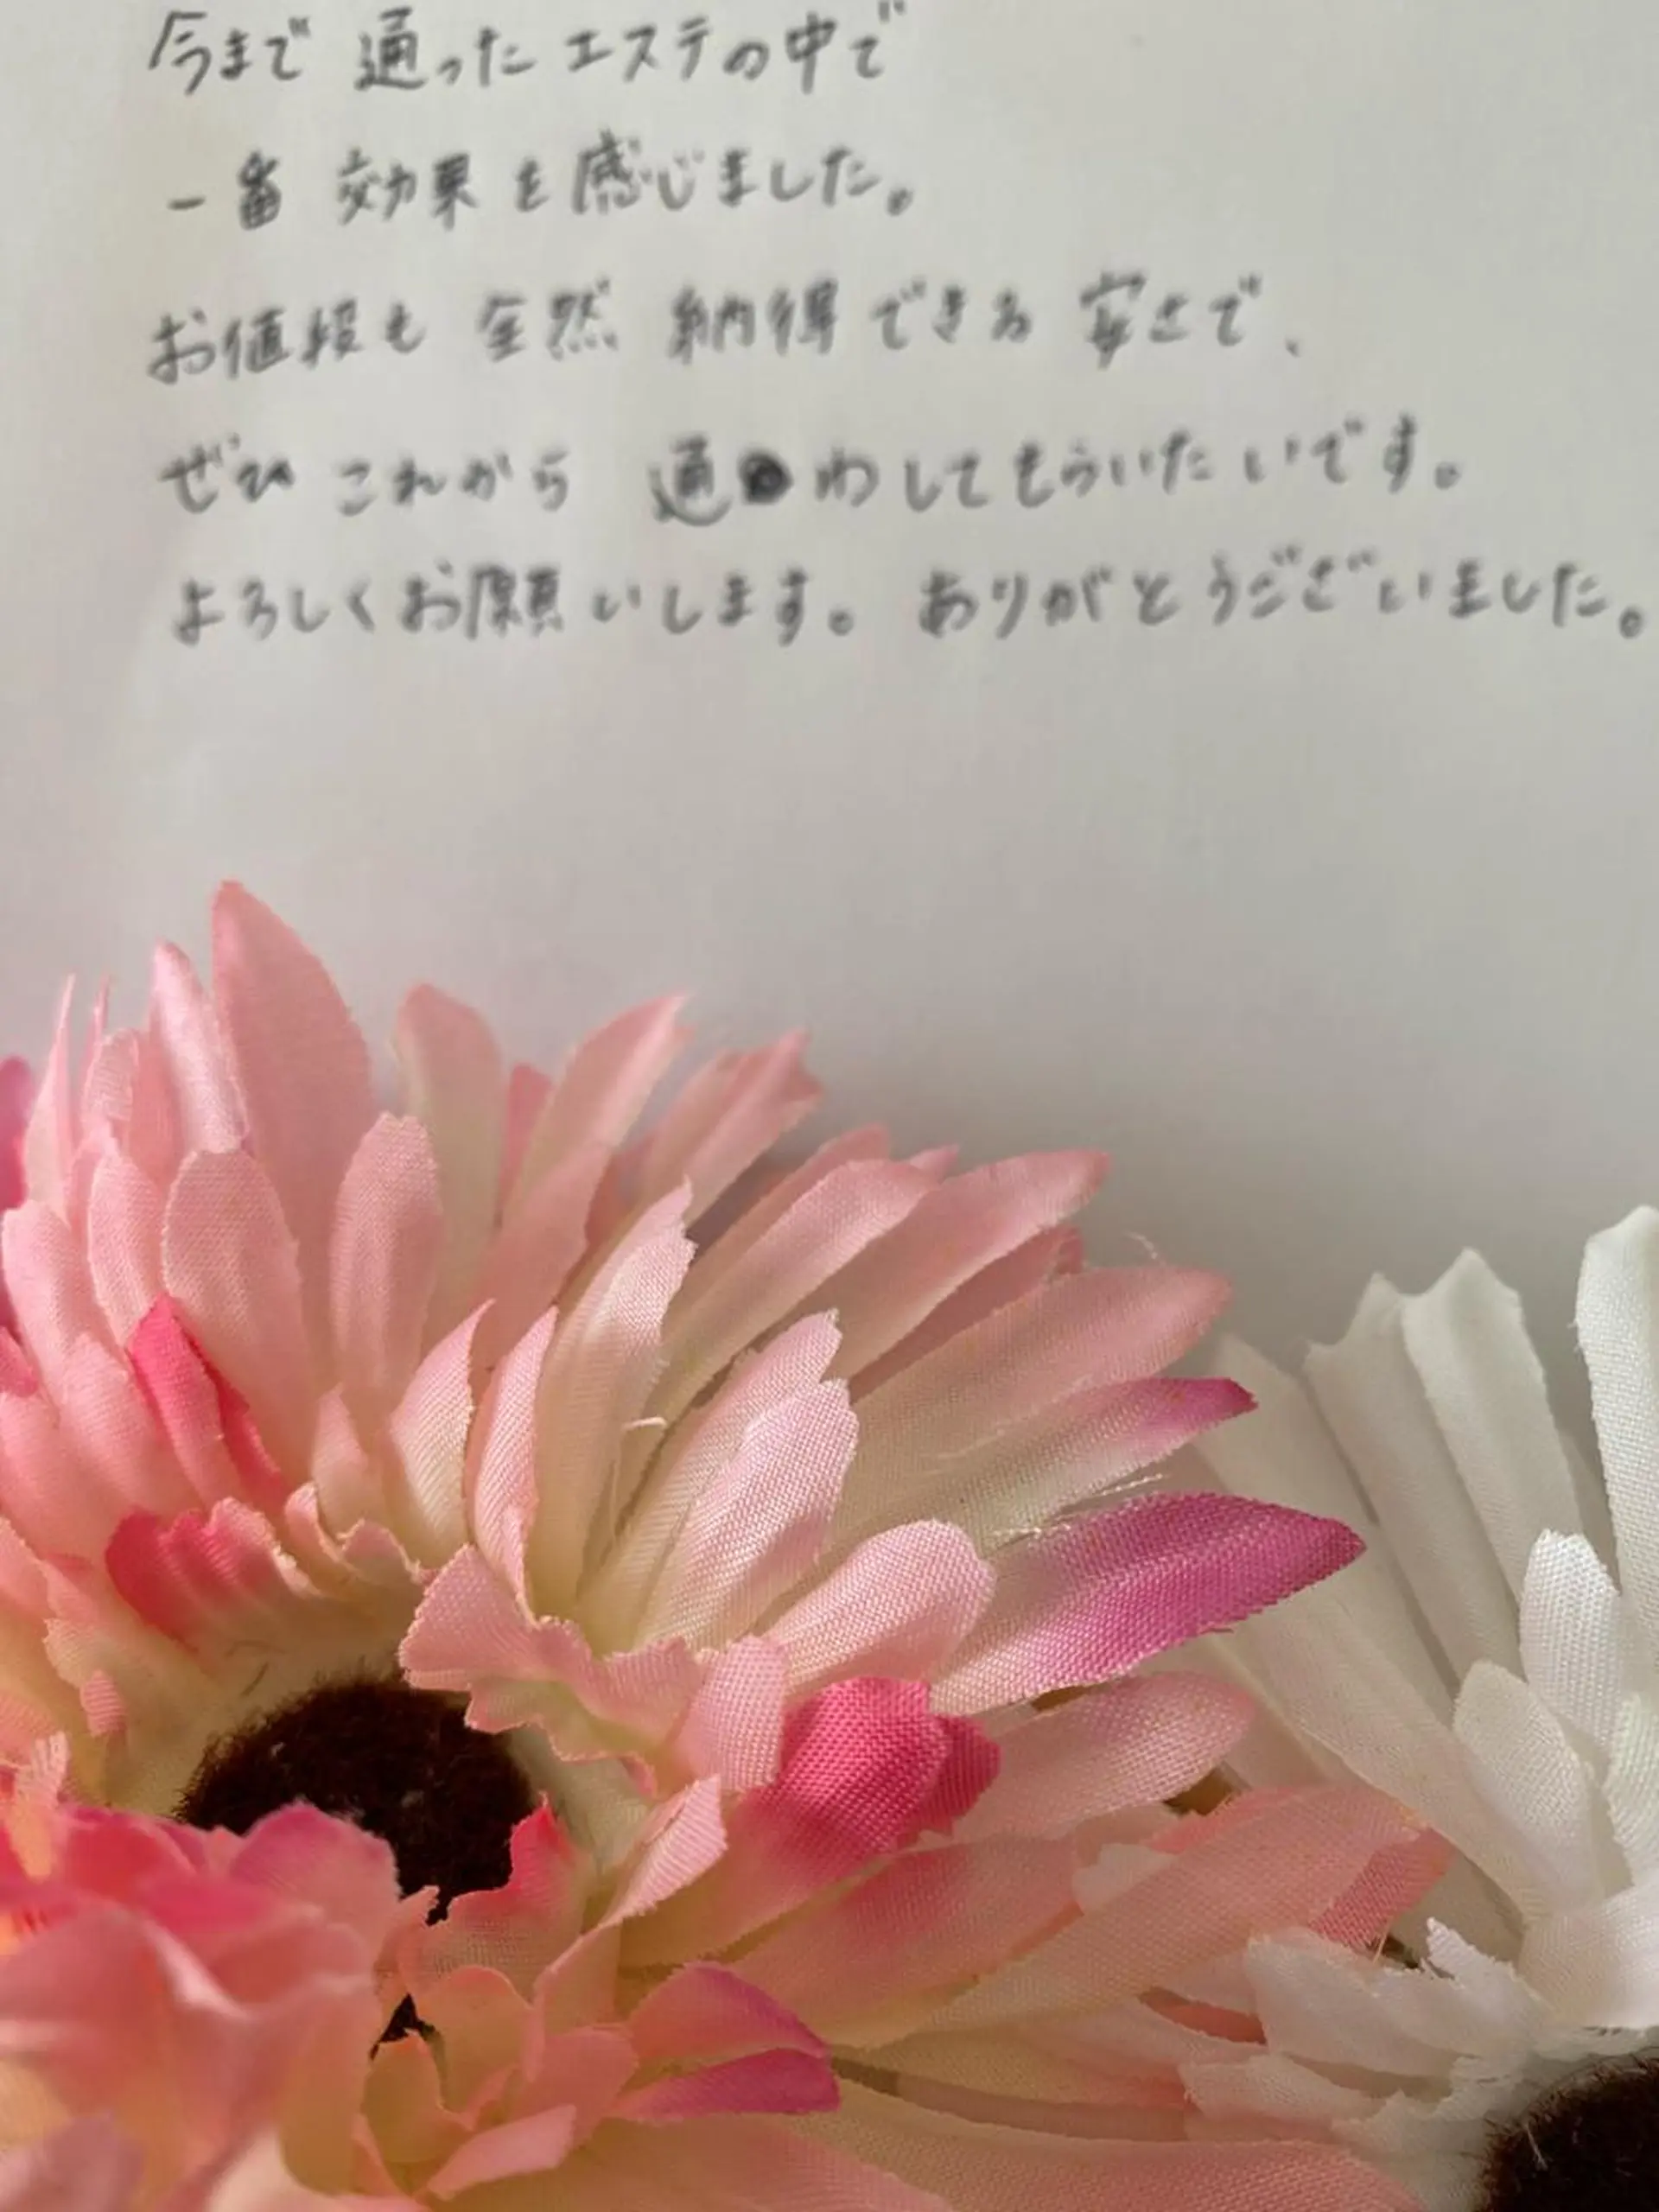 今まで 通ったエステの中で
一番 効果を感じました。
お値段も 全然 納得できる 安さで、
ぜひ これから 通わしてもらいたいです。
よろしくお願いします。 ありがとうございました。